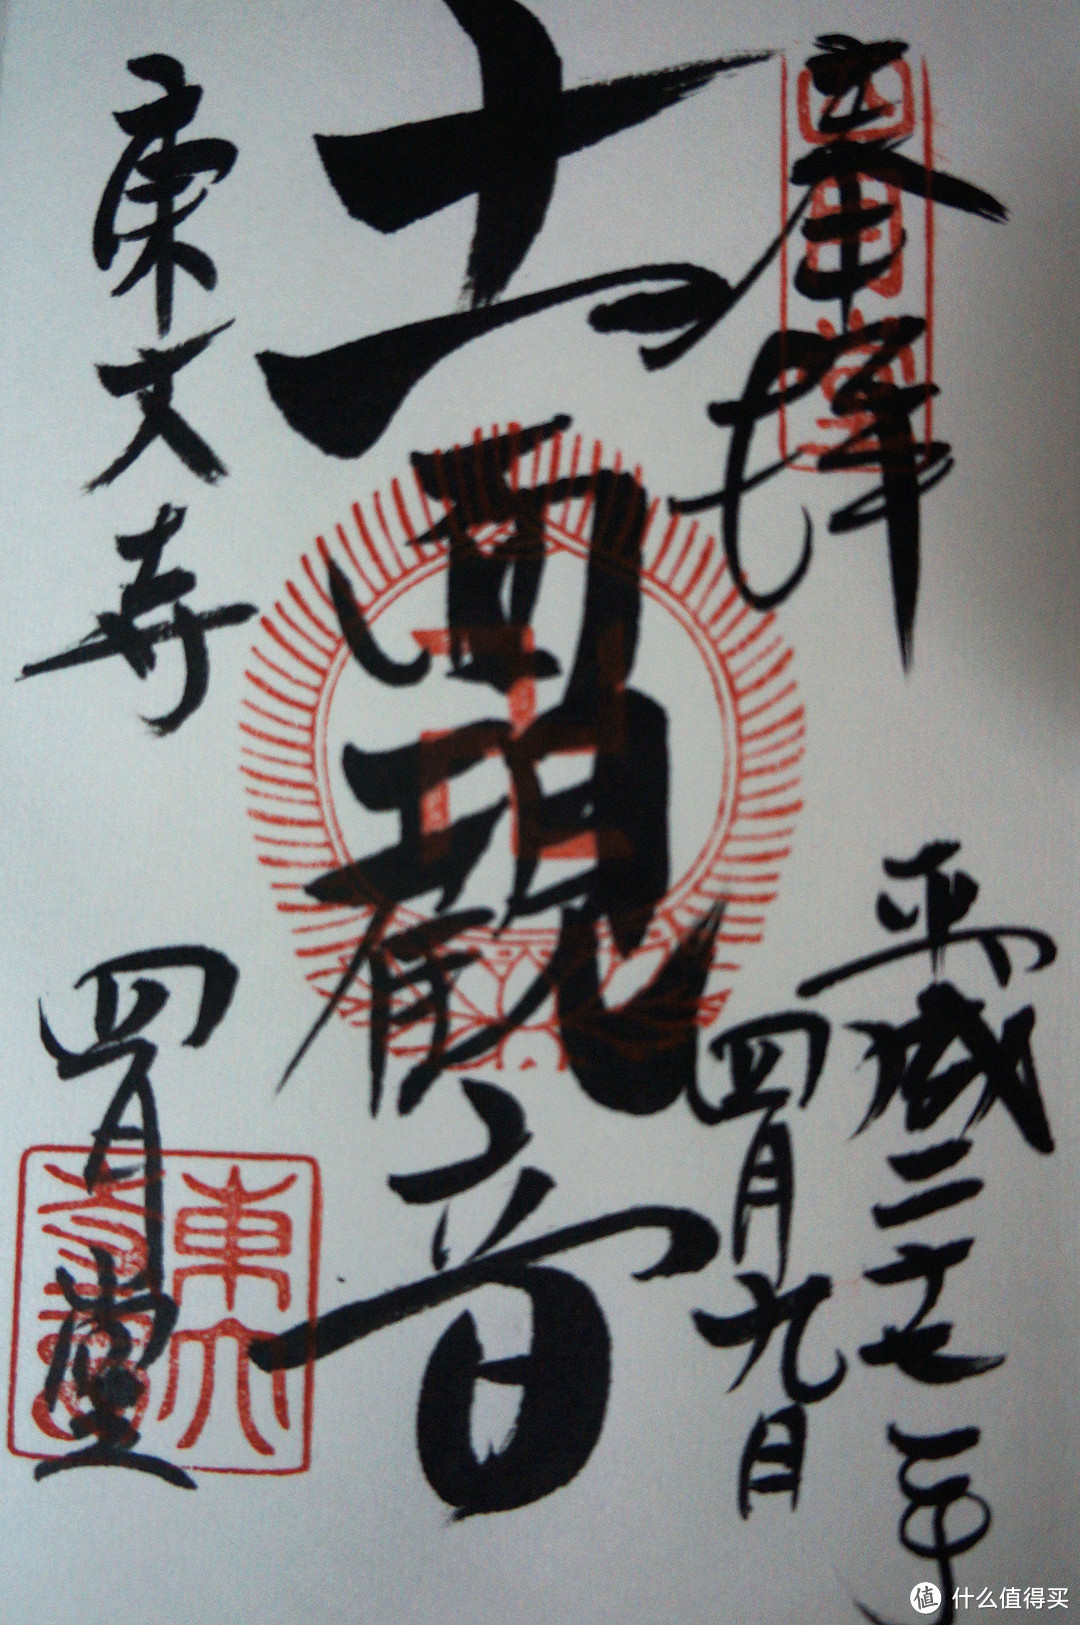 奉拝
四月堂
平成二十七年
四月九日
十一面観音
東大寺
四月堂
東大
值 什么值得买